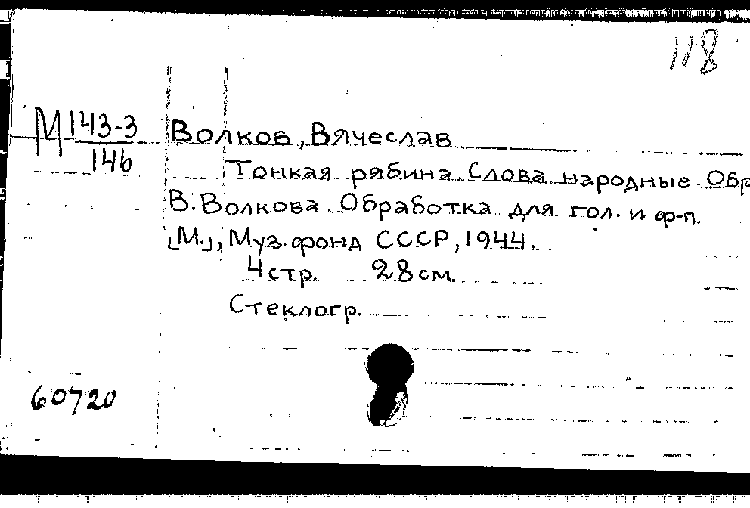 118
М 143-3
146
Волков, Вячеслав
Тонкая рябина. Слова народные Обр
В. Волкова. Обработка для гол. и ф-п.
[М.], Муз. фонд СССР, 1944.
4 стр. 28 см.
Стеклогр.
60720